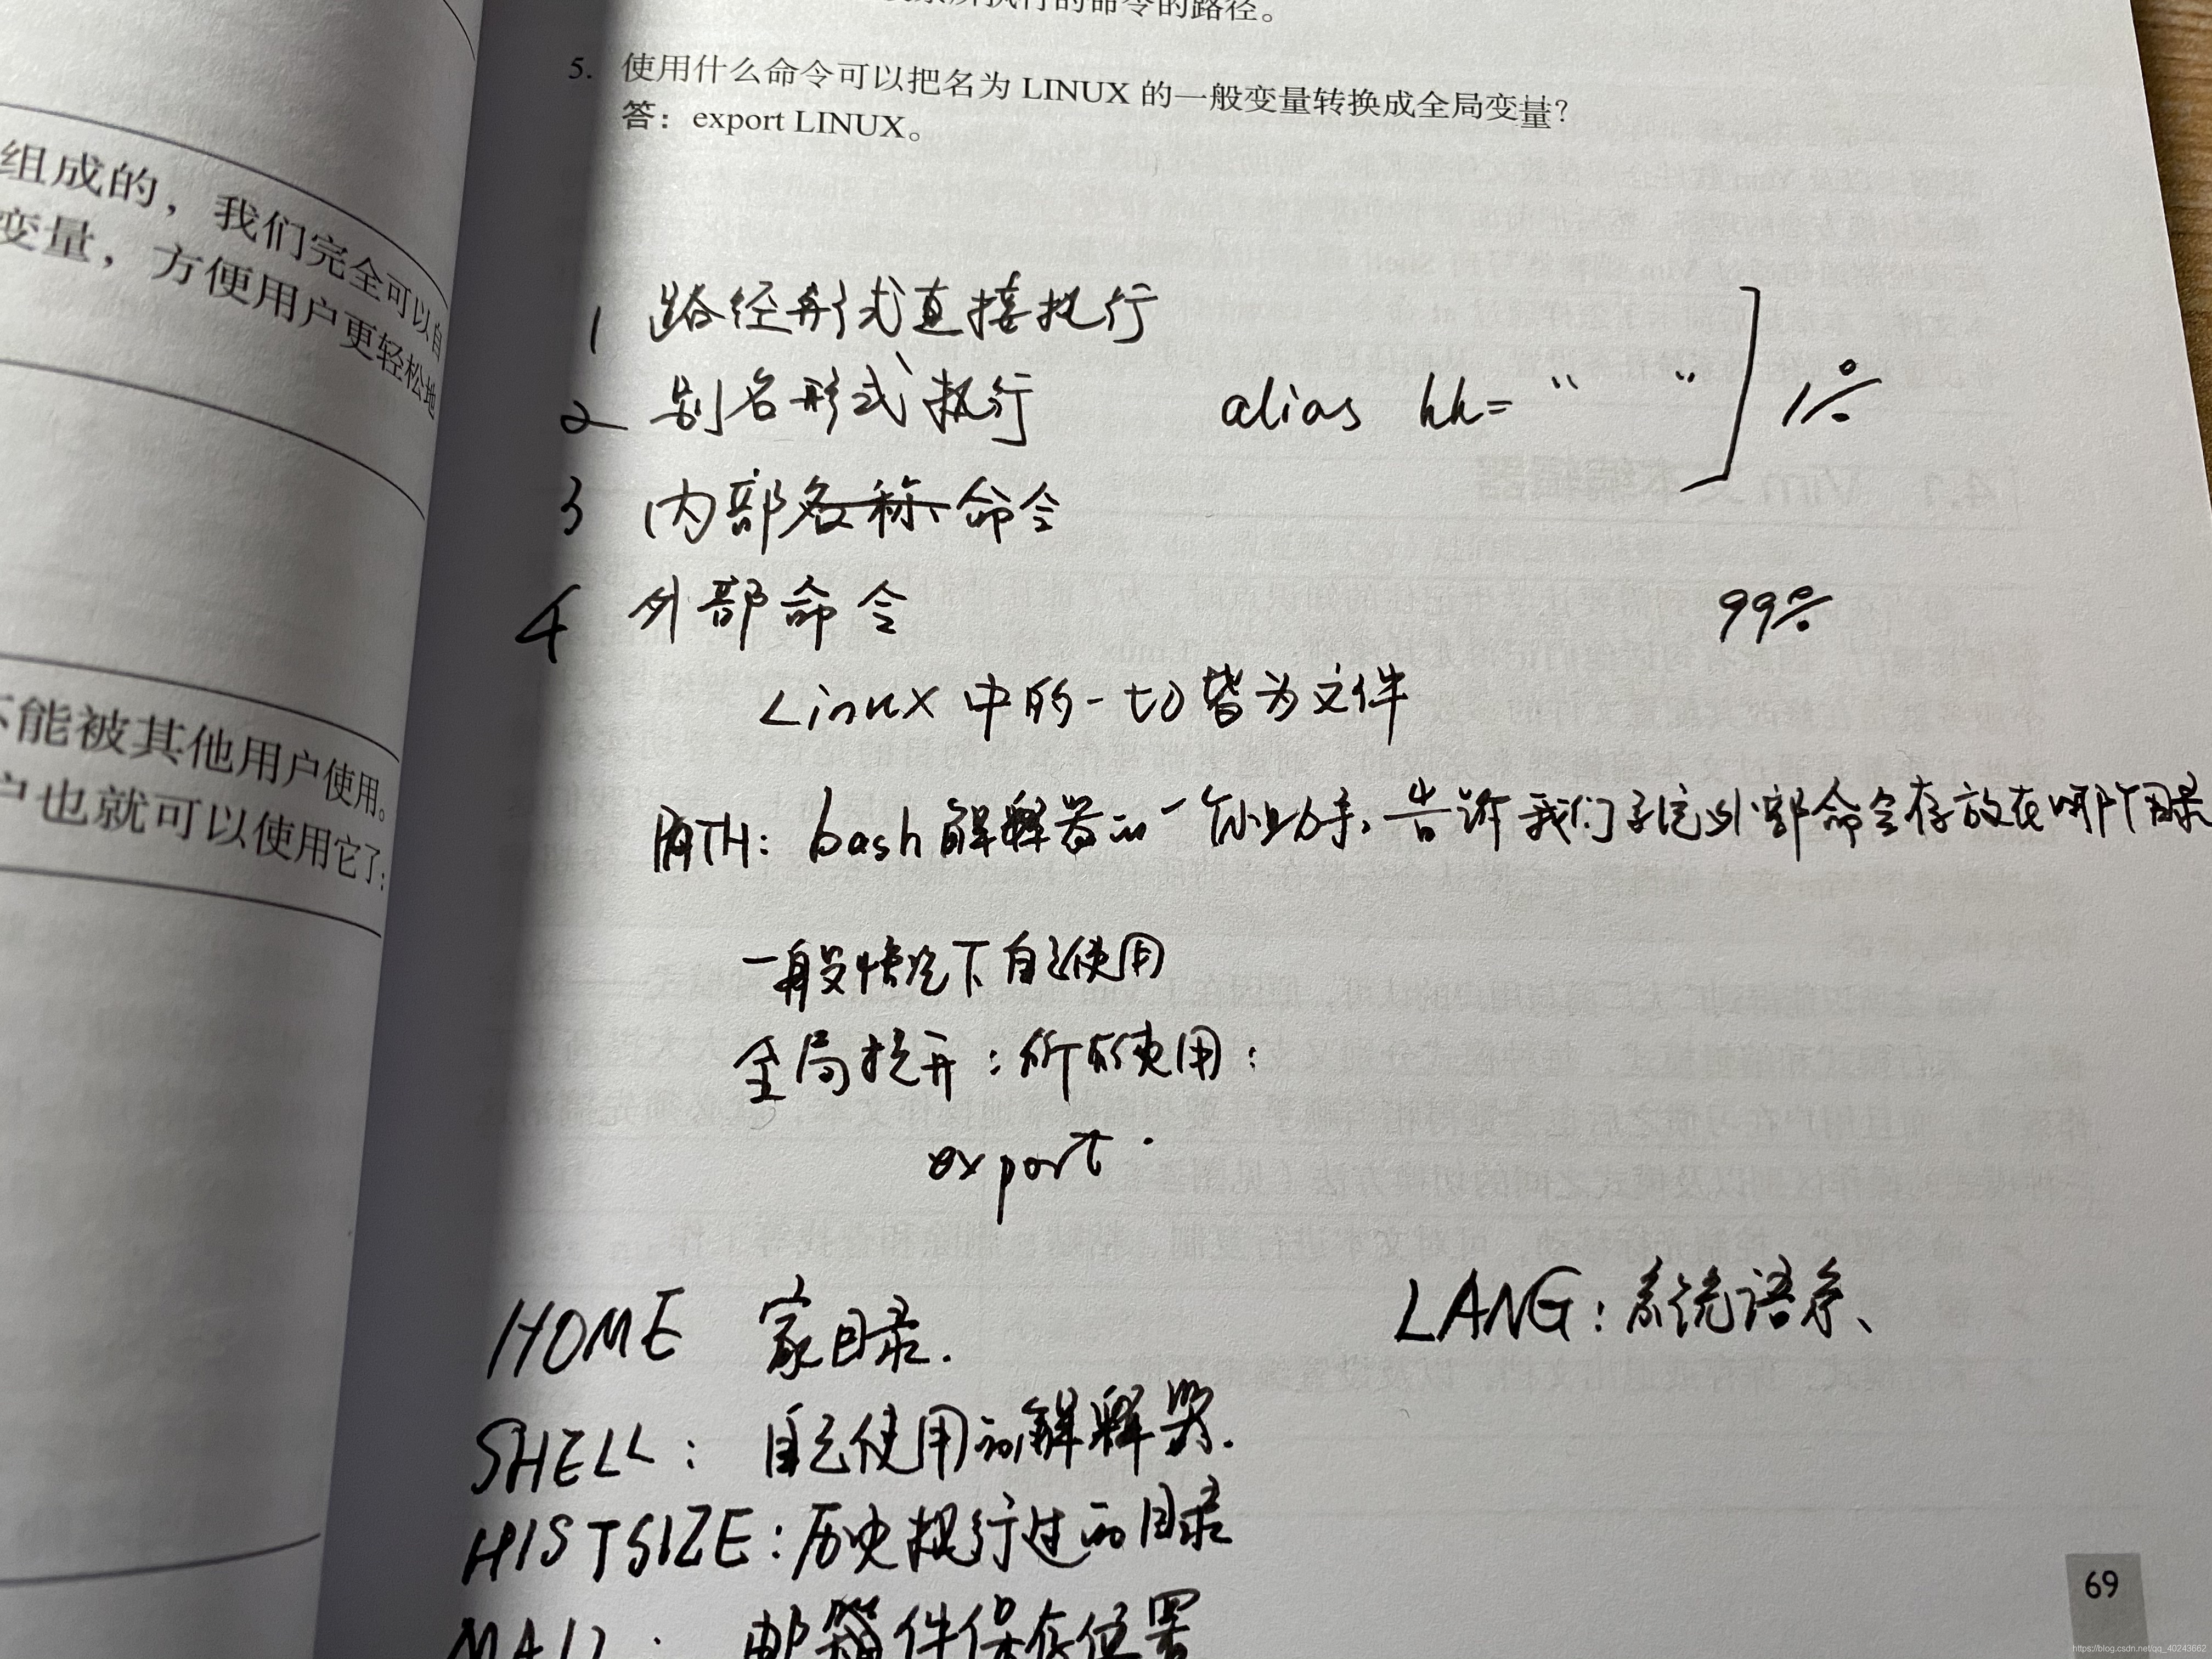 组成的，我们完全可以自
变量，方便用户更轻松地
不能被其他用户使用。
户也就可以使用它了：
所执行的命令的路径。
5. 使用什么命令可以把名为 LINUX 的一般变量转换成全局变量？
答：export LINUX。
1 路径形式直接执行
2 别名形式执行 alias hh= “ ” 1%
3 内部名称命令
4 外部命令 99%
Linux 中的一切皆为文件
PATH: bash 解释器的一个小助手，告诉我们系统外部命令存放在哪个目录
一般情况下自己使用
全局提升：所有使用：
export
HOME 家目录.
LANG: 系统语系、
SHELL: 自己使用的解释器.
HISTSIZE: 历史执行过的目录
MAIL: 邮箱件保存位置
69
https://blog.csdn.net/qq_40243662